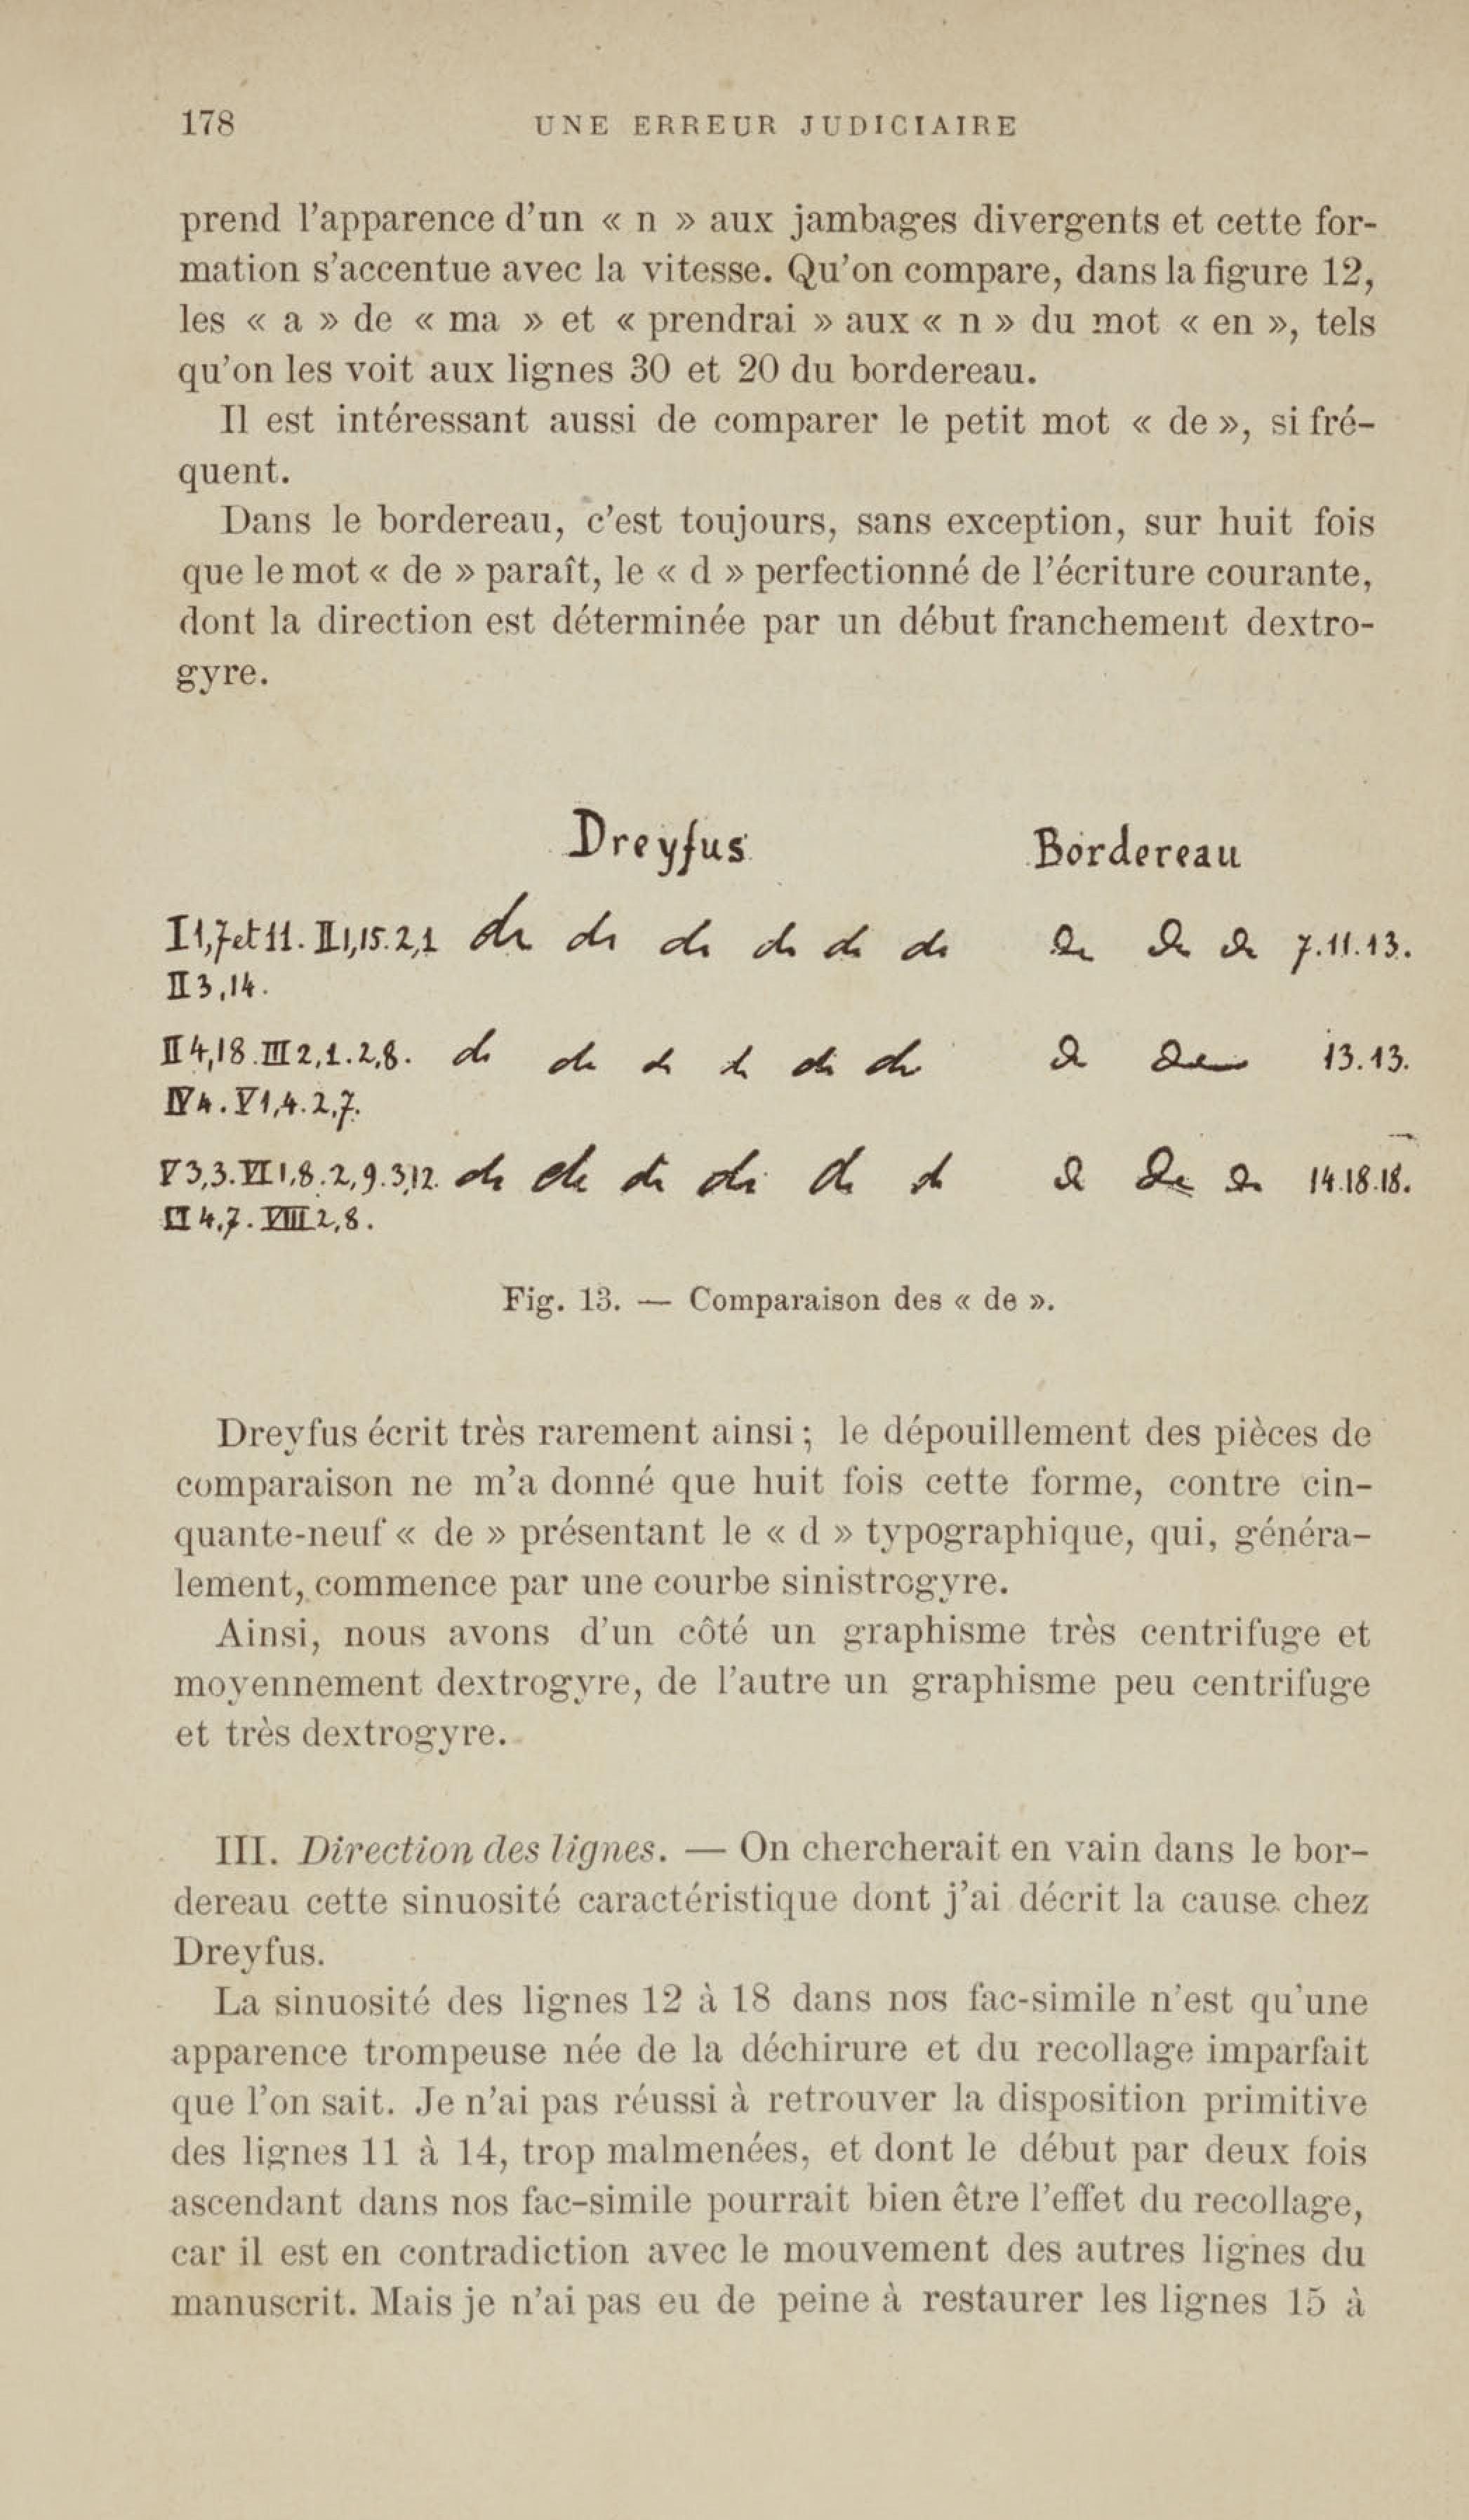 178 UNE ERREUR JUDICIAIRE
prend l'apparence d'un « n » aux jambages divergents et cette for-
mation s'accentue avec la vitesse. Qu'on compare, dans la figure 12,
les « a » de « ma » et « prendrai » aux « n » du mot « en », tels
qu'on les voit aux lignes 30 et 20 du bordereau.
Il est intéressant aussi de comparer le petit mot « de », si fré-
quent.
Dans le bordereau, c'est toujours, sans exception, sur huit fois
que le mot « de » paraît, le « d » perfectionné de l'écriture courante,
dont la direction est déterminée par un début franchement dextro-
gyre.
Dreyfus Bordereau
I1,7et11. II1,15.2,1 de de de de de de de de de 7.11.13.
II3,14.
II4,18.III2,1.2,8. de de de de de de de de 13.13.
IV4.V1,4.2,7.
V3,3.VI1,8.2,9.3,12. de de de de de de de de de 14.18.18.
4,7.VIII2,8.
Fig. 13. — Comparaison des « de ».
Dreyfus écrit très rarement ainsi ; le dépouillement des pièces de
comparaison ne m'a donné que huit fois cette forme, contre cin-
quante-neuf « de » présentant le « d » typographique, qui, généra-
lement, commence par une courbe sinistrogyre.
Ainsi, nous avons d'un côté un graphisme très centrifuge et
moyennement dextrogyre, de l'autre un graphisme peu centrifuge
et très dextrogyre.
III. Direction des lignes. — On chercherait en vain dans le bor-
dereau cette sinuosité caractéristique dont j'ai décrit la cause chez
Dreyfus.
La sinuosité des lignes 12 à 18 dans nos fac-simile n'est qu'une
apparence trompeuse née de la déchirure et du recollage imparfait
que l'on sait. Je n'ai pas réussi à retrouver la disposition primitive
des lignes 11 à 14, trop malmenées, et dont le début par deux fois
ascendant dans nos fac-simile pourrait bien être l'effet du recollage,
car il est en contradiction avec le mouvement des autres lignes du
manuscrit. Mais je n'ai pas eu de peine à restaurer les lignes 15 à